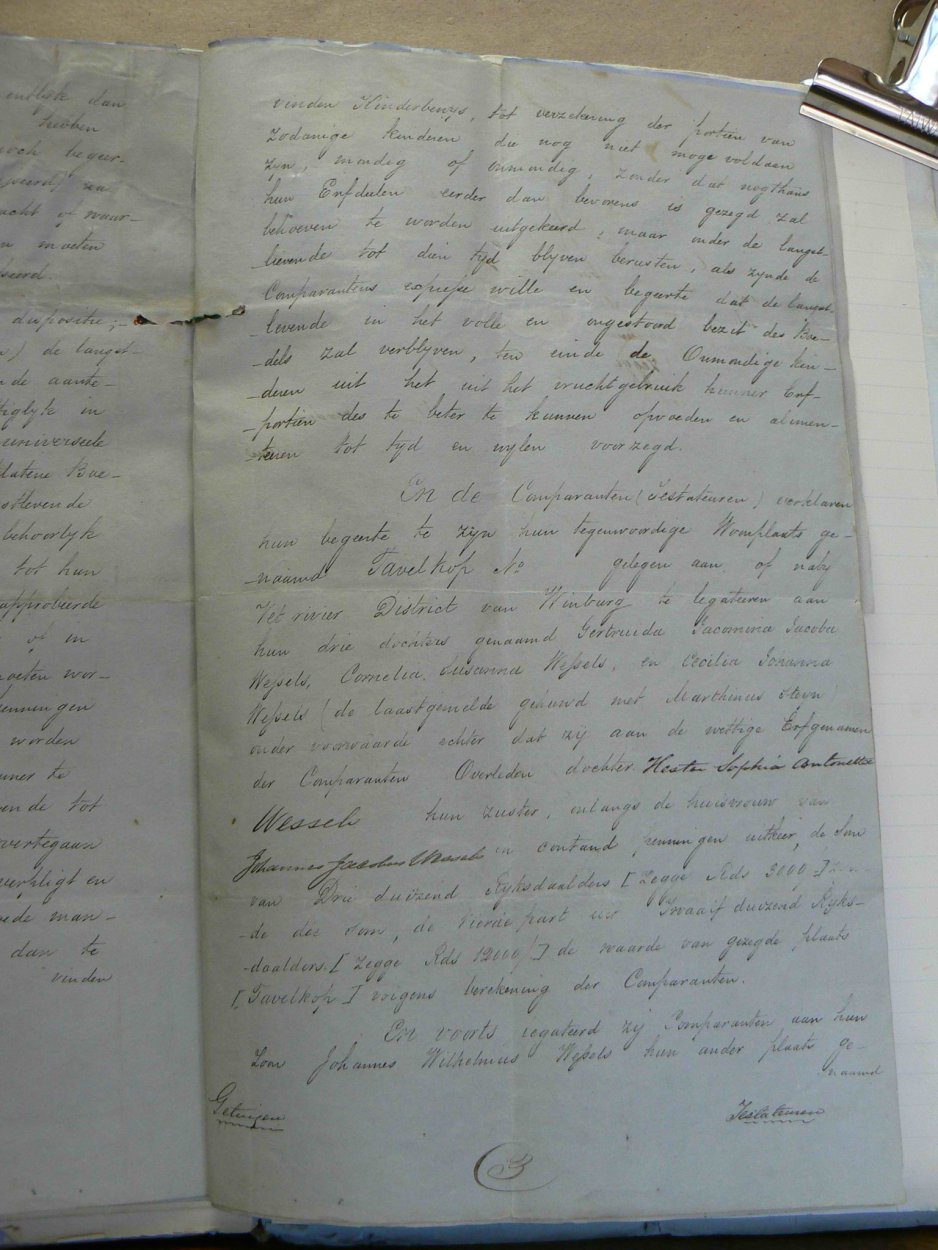 entlyk dan
hebben
noch begeer-
acht of waar-
n moeten
seerd.
dispositie;-
) de langst-
nde aante-
tiglyk in
universeele
latene Boe-
stlevende
behoorlyk
tot hun
approbeerde
of in
moeten wor-
penningen
worden
nner te
ende tot
overtegaan
verpligt en
oede man-
dan te
vinden
vinden Kinderbewys, tot verzekering der portien van
zodanige kinderen die nog niet moge voldaan
zyn, mondig of onmondig, zonder dat nogthans
hun Erfdeelen eerder dan bevorens is gezegd zal
behoeven te worden uitgekeerd, maar onder de langst-
-levende tot dien tyd blyven berusten, als zynde de
Comparantens expresse wille en begeerte dat de langst
levende in het volle en ongestoord bezit des Boe-
-dels zal verblyven, ten einde de Onmondige kin-
-deren uit het uit het vruchtgebruik hunner Erf-
-portien des te beter te kunnen opvoeden en alimen-
-teren tot tyd en wylen voorzegd.
En de Comparanten (Testateuren) verklaren
hun begeerte te zijn hun tegenwoordige Woonplaats ge-
naamd Tavelkop No gelegen aan of naby
Vet rivier District van Winburg te legateeren aan
hun drie dochters genaamd Gertruida Jacomina Jacoba
Wessels, Cornelia Susanna Wessels, en Cecilia Johanna
Wessels (de laastgemelde gehuwd met Marthinus Steyn)
onder voorwaarde echter dat zij aan de wettige Erfgenamen
der Comparanten Overleden dochter Hester Sophia Antonetta
Wessels hun zuster, onlangs de huisvrouw van
Johannes Jacobus Wessels in contand penningen uitkeer, de Som
van Drie duizend Ryksdaalders [Zegge Rds 3000,-] zyn-
-de die som, de vierde part uw Twaalf duizend Ryks-
-daalders [Zegge Rds 12000/-] de waarde van gezegde plaats
[Tavelkop] volgens berekening der Comparanten.
En voorts legateerd zij Comparanten aan hun
Zoon Johannes Wilhelmus Wessels hun ander plaats ge-
naamd
Getuigen
Testateuren
3